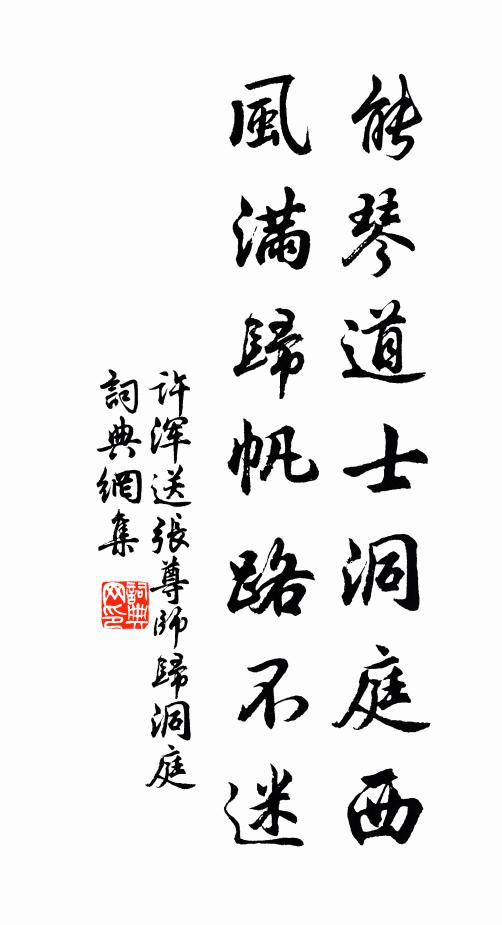 能琴道士洞庭西
風滿歸帆路不迷
许渾送張尊師歸洞庭
詞典網集
詞典网印